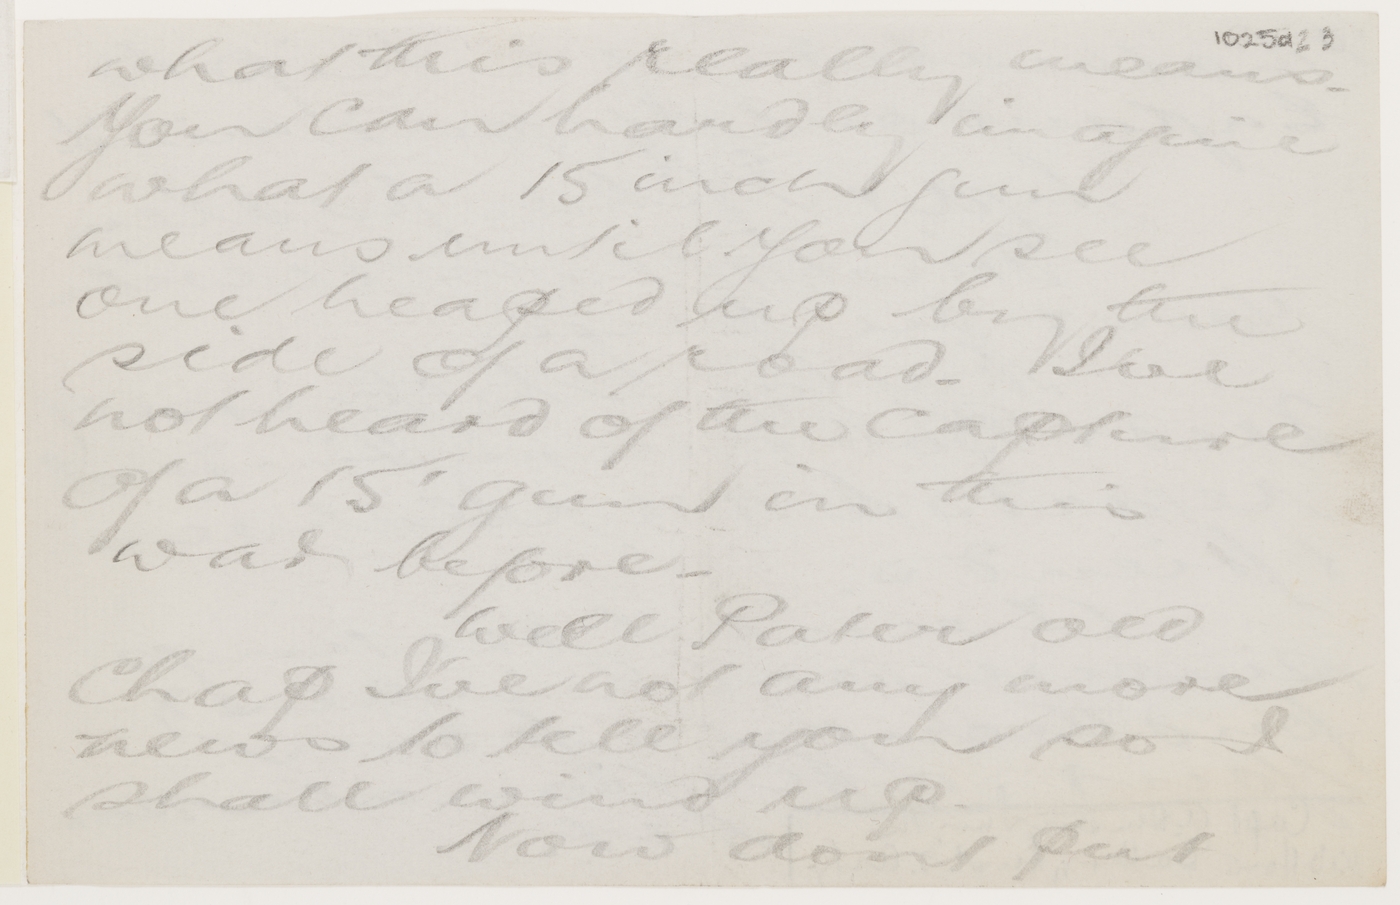 1025d23
what this really means.
You can hardly imagine
what a 15 inch gun
means until you see
one heaped up by the
side of a road. I've
not heard of the capture
of a 15' gun in this
war before -
Well Pater old
Chap I've not any more
news to tell you so I
shall wind up.
Now dont put